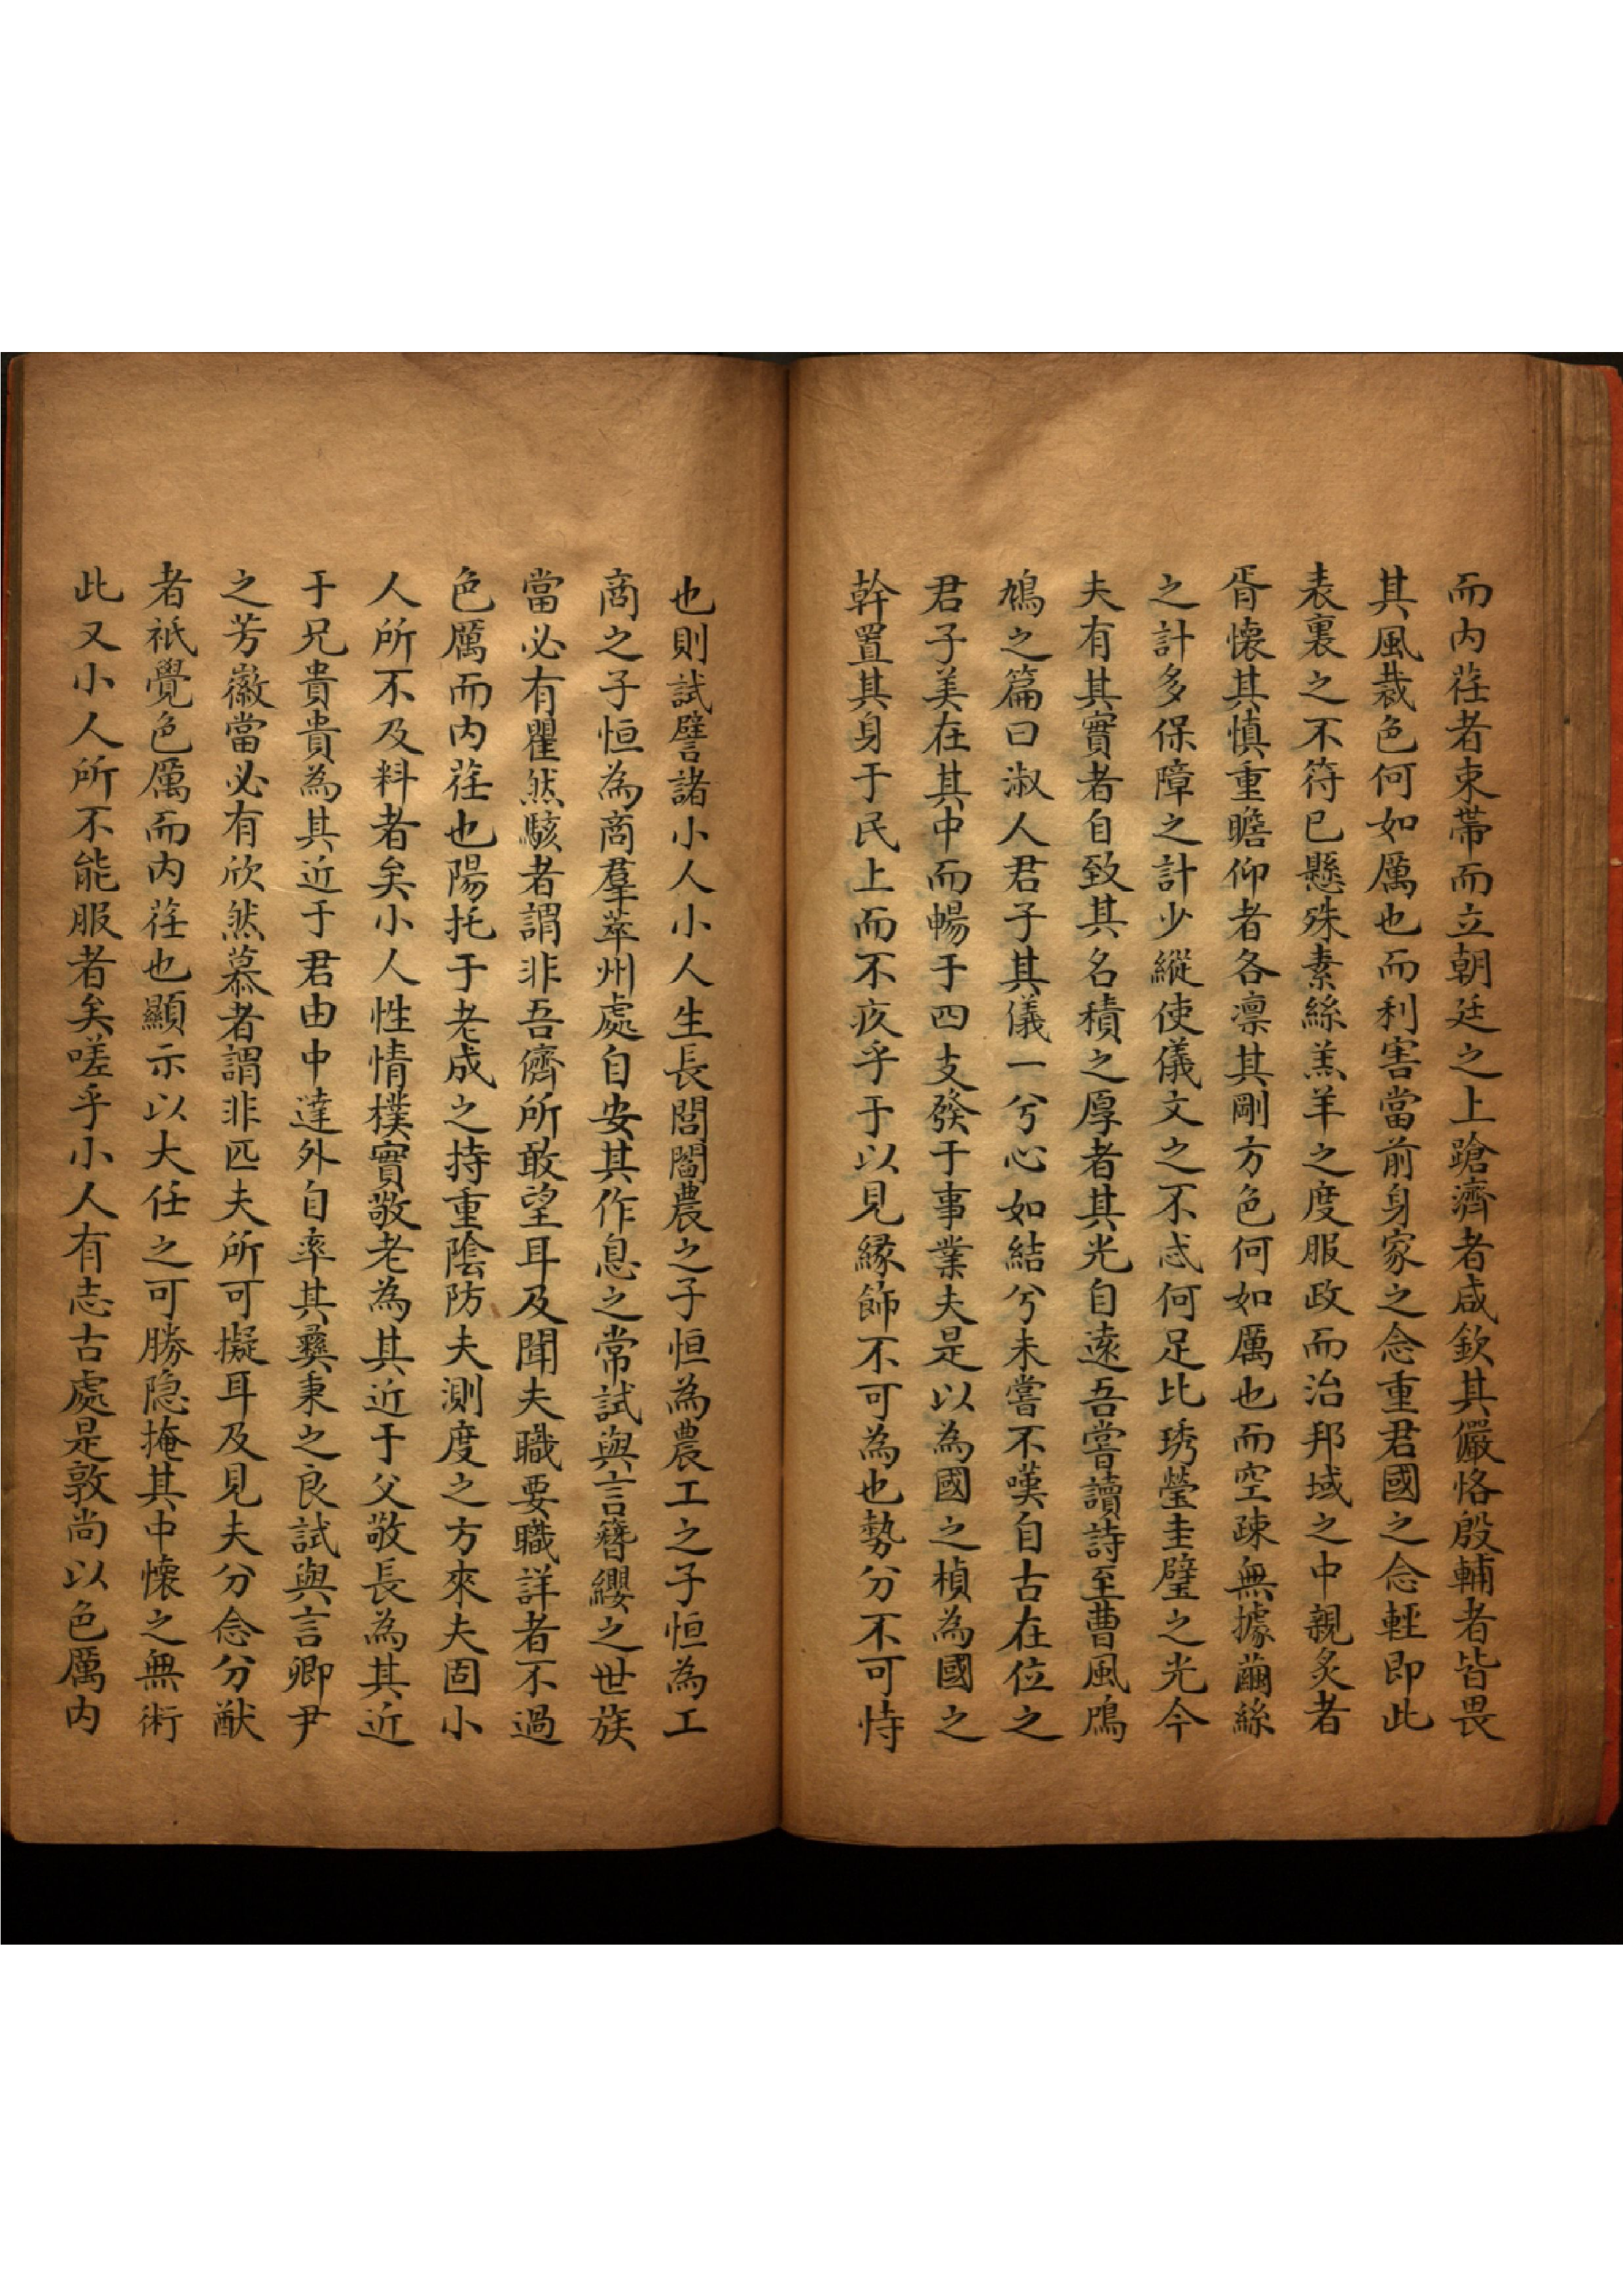 而内荏者束帶而立朝廷之上蹌濟者咸欽其儼恪殷輔者皆畏
其風裁色何如厲也而利害當前身家之念重君國之念輕即此
表裏之不符已懸殊素絲羔羊之度服政而治邦域之中親炙者
胥懷其慎重瞻仰者各凛其剛方色何如厲也而空疎無據繭絲
之計多保障之計少縱使儀文之不忒何足比琇瑩圭璧之光今
夫有其實者自致其名積之厚者其光自遠吾嘗讀詩至曹風鳲
鳩之篇曰淑人君子其儀一兮心如結兮未嘗不嘆自古在位之
君子美在其中而暢于四支發于事業夫是以為國之楨為國之
幹置其身于民上而不疚乎于以見緣飾不可為也勢分不可恃
也則試譬諸小人小人生長閭閻農之子恒為農工之子恒為工
商之子恒為商羣萃州處自安其作息之常試與言簪纓之世族
當必有瞿然駭者謂非吾儕所敢望耳及聞夫職要職詳者不過
色厲而内荏也陽托于老成之持重陰防夫測度之方來夫固小
人所不及料者矣小人性情樸實敬老為其近于父敬長為其近
于兄貴貴為其近于君由中達外自率其彝秉之良試與言卿尹
之芳徽當必有欣然慕者謂非匹夫所可擬耳及見夫分念分猷
者祇覺色厲而内荏也顯示以大任之可勝隐掩其中懷之無術
此又小人所不能服者矣嗟乎小人有志古處是敦尚以色厲内